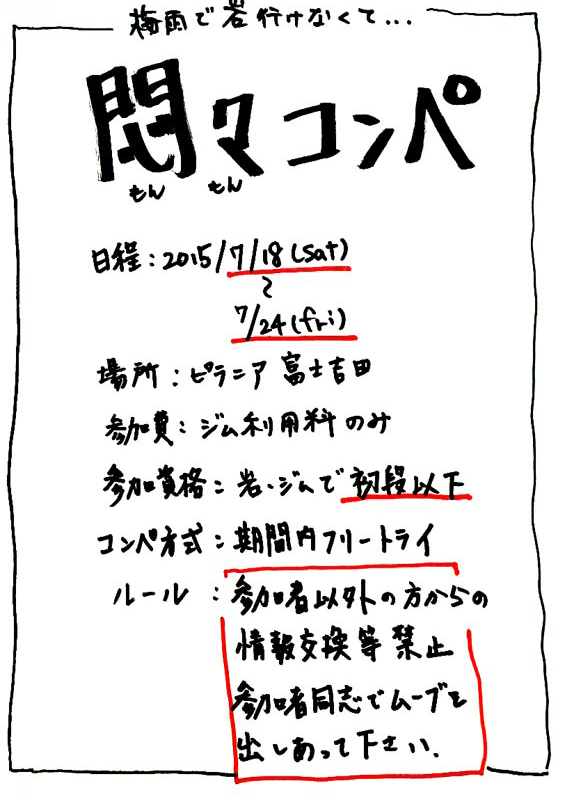 梅雨で岩行けなくて...
悶々コンペ
もん もん
日程:2015/7/18(sat)
~
7/24(fri)
場所:ピラニア 富士吉田
参加費:ジム利用料のみ
参加資格:岩・ジムで初段以下
コンペ方式:期間内フリートライ
ルール:参加者以外の方からの
情報交換等禁止
参加者同志でムーブを
出しあって下さい.